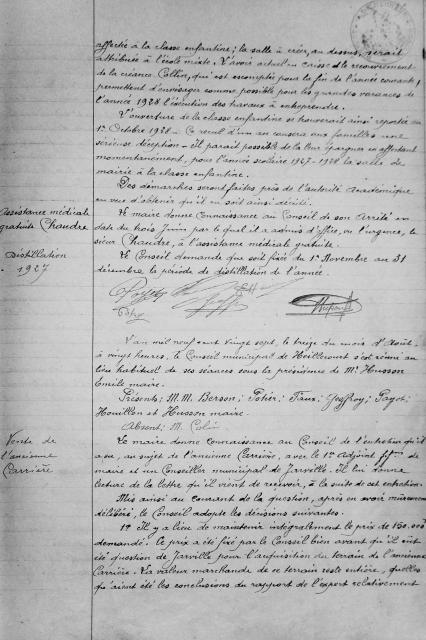 affectée à la classe enfantine; la salle à créer, au dessus, serait
attribuée à l'école mixte. L'avoir actuel en caisse et le recouvrement
de la créance Collin, qui est escomptée pour la fin de l'année courante,
permettent d'envisager comme possible pour les grandes vacances de
l'année 1928 l'exécution des travaux à entreprendre.
L'ouverture de la classe enfantine se trouverait ainsi reportée au
1er Octobre 1928. Ce recul d'un an causera aux familles une
sérieuse déception. Il parait possible de la leur épargner en affectant
momentanément, pour l'année scolaire 1927-1928 la salle de
mairie à la classe enfantine.
Des démarches seront faites près de l'autorité académique
en vue d'obtenir qu'il en soit ainsi décidé.
Assistance médicale
gratuite Chaudre
Le maire donne connaissance au Conseil de son arrêté en
date du trois Juin par lequel il a admis d'office, vu l'urgence, le
sieur Chaudre, à l'assistance médicale gratuite.
Distillation
1927
Le Conseil demande que soit fixée du 1er Novembre au 31
décembre, la période de distillation de l'année.
L'an mil neuf cent vingt sept, le treize du mois d'Août,
à vingt heures, le Conseil municipal de Heillecourt s'est réuni au
lieu habituel de ses séances sous la présidence de Mr Husson
Emile maire.
Présents: M.M. Berson; Pother; Faux; Geoffroy; Payot;
Houillon et Husson maire.
Absent: M. Colin
Vente de
l'ancienne
Carrière
Le maire donne connaissance au Conseil de l'entretien qu'il
a eu, au sujet de l'ancienne Carrière, avec le 1er Adjoint ff.ons de
maire et un Conseiller municipal de Jarville. Il lui donne
lecture de la lettre qu'il vient de recevoir, à la suite de cet entretien.
Mis ainsi au courant de la question, après en avoir mûrement
délibéré, le Conseil adopte les décisions suivantes.
1° Il y a lieu de maintenir intégralement le prix de 150.000
demandé. Ce prix a été fixé par le Conseil bien avant qu'il ait
été question de Jarville pour l'acquisition du terrain de l'ancienne
Carrière. La valeur marchande de ce terrain reste entière, quelles
qu'aient été les conclusions du rapport de l'expert relativement